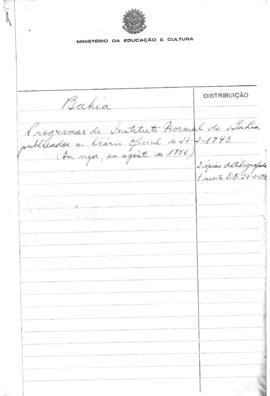 MINISTÉRIO DA EDUCAÇÃO E CULTURA
DISTRIBUIÇÃO
Bahia
Programas do Instituto Normal da Bahia
publicados no Diário Oficial de 27-2-1943
(Em vigor, em agosto de 1956)
3 cópias datilografadas
1 D.O. 27-2-194